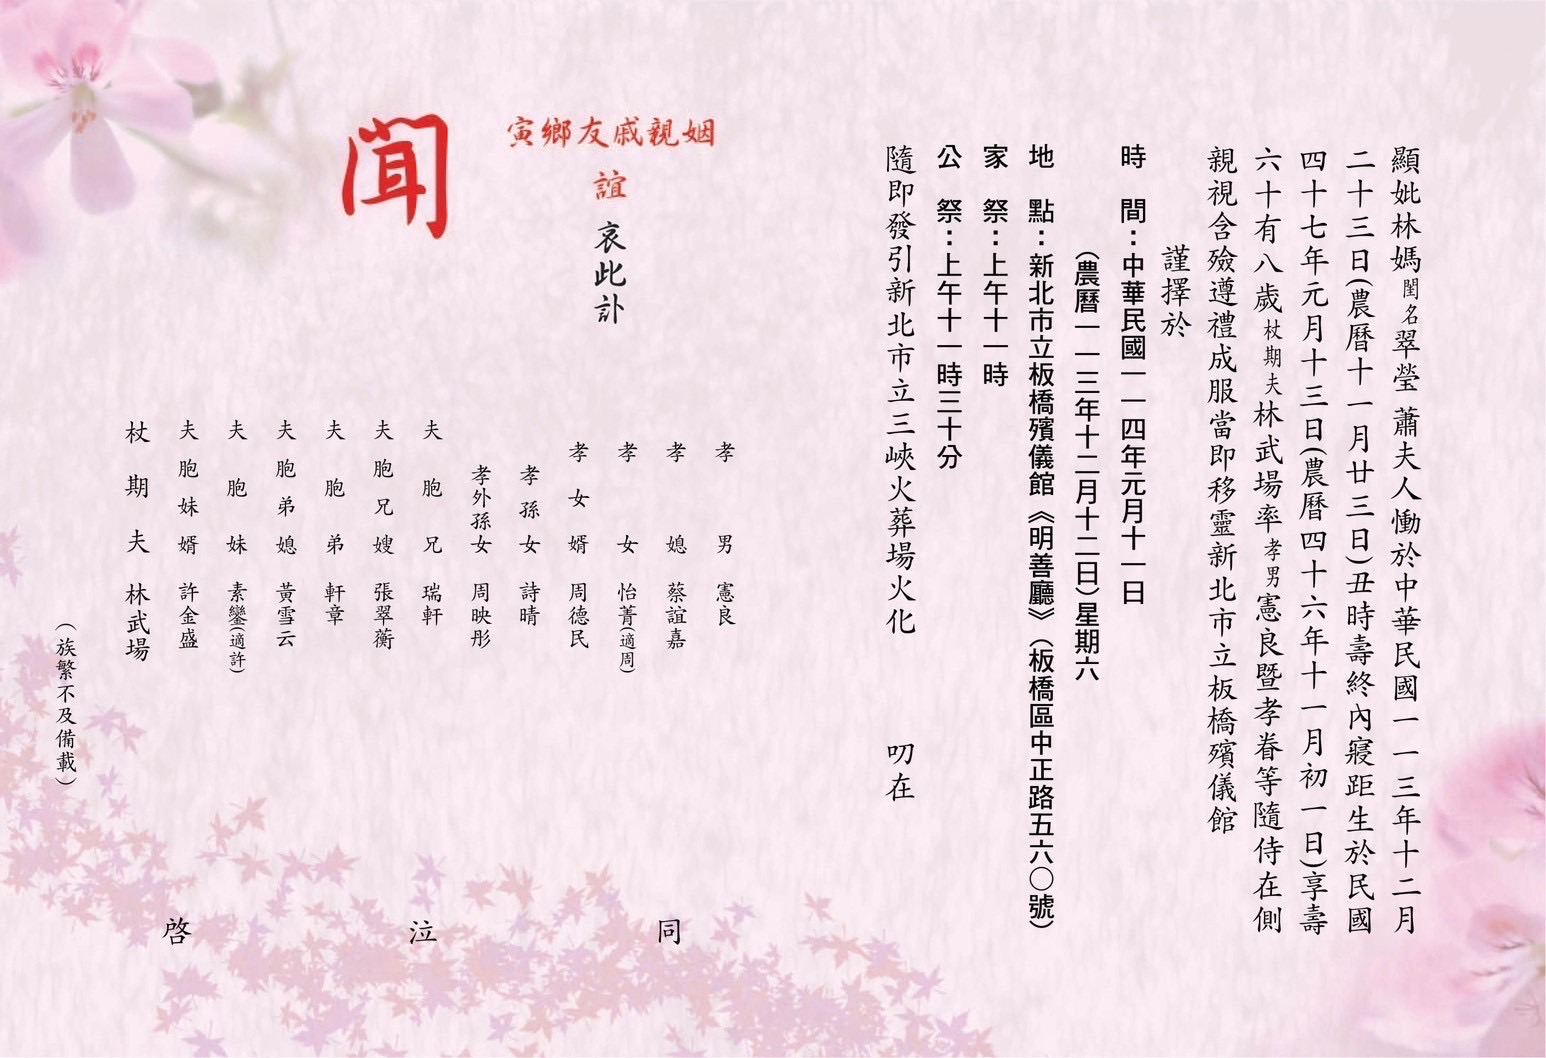 顯妣林媽閨名翠瑩 蕭夫人慟於中華民國一一三年十二月
二十三日(農曆十一月廿三日)丑時壽終內寢距生於民國
四十七年元月十三日(農曆四十六年十一月初一日)享壽
六十有八歲杖期夫林武場率孝男憲良暨孝眷等隨侍在側
親視含殮遵禮成服當即移靈新北市立板橋殯儀館
謹擇於
時 間：中華民國一一四年元月十一日
(農曆一一三年十二月十二日)星期六
地 點：新北市立板橋殯儀館《明善廳》(板橋區中正路五六〇號)
家 祭：上午十一時
公 祭：上午十一時三十分
隨即發引新北市立三峽火葬場火化 叨在
姻親戚友鄉寅
誼
哀此訃
聞
孝男 憲良
孝媳 蔡誼嘉
孝女 怡菁(適周)
孝女婿 周德民
孝孫女 詩晴
孝外孫女 周映彤
夫胞兄 瑞軒
夫胞兄嫂 張翠蘅
夫胞弟 軒章
夫胞弟媳 黃雪云
夫胞妹 素鑾(適許)
夫胞妹婿 許金盛
杖期夫 林武場
(族繁不及備載)
同 泣 啓